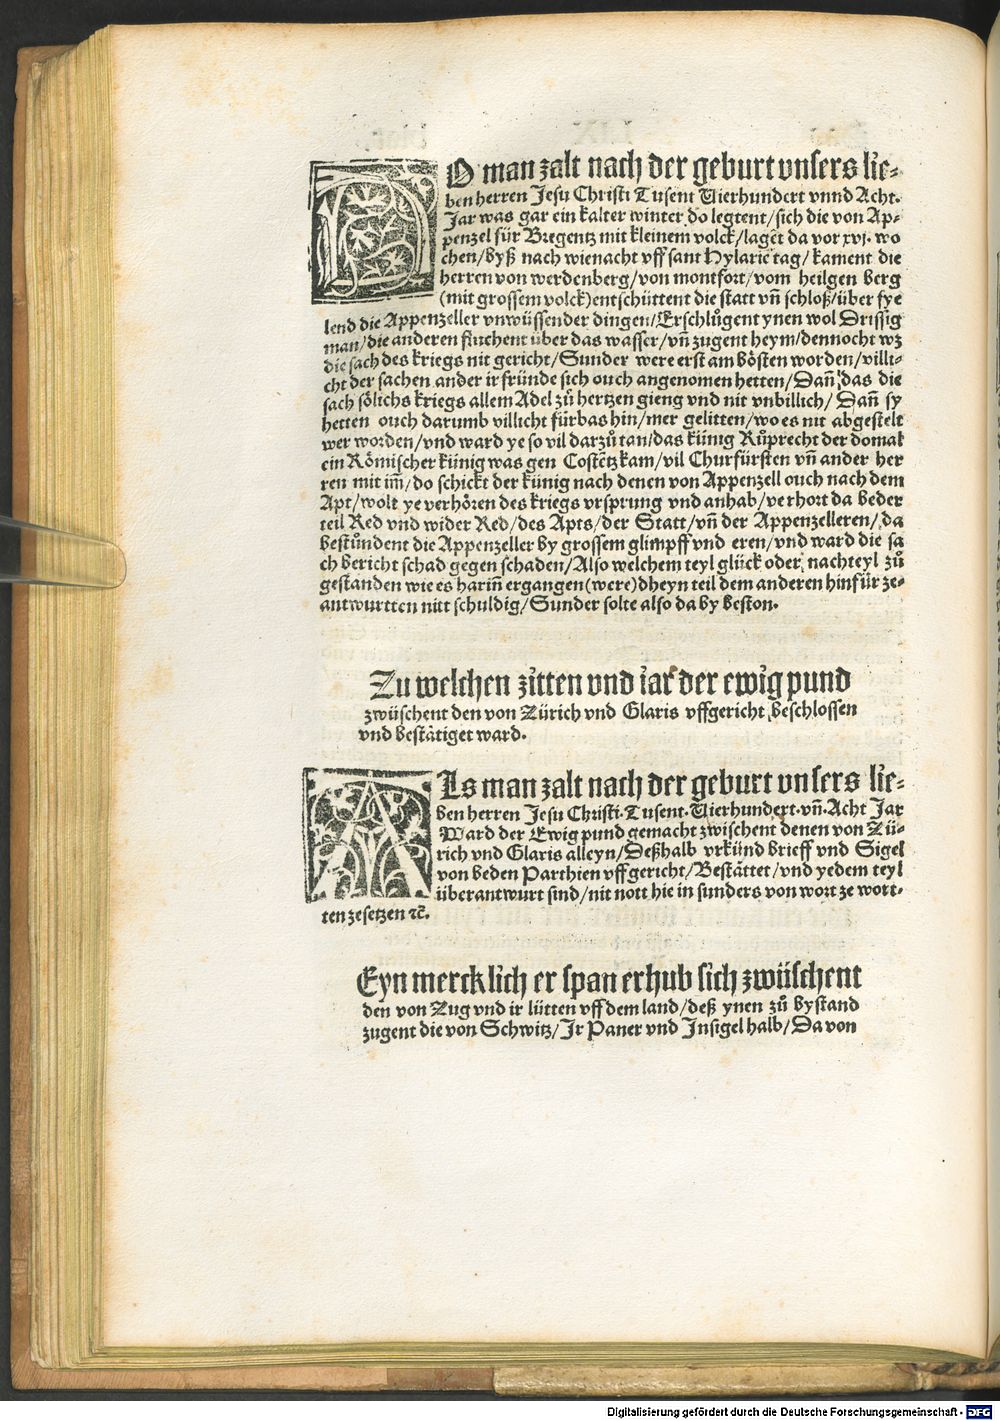 DO man zalt nach der geburt vnsers lie-
ben herren Jesu Christi Tusent Vierhundert vnnd Acht.
Jar was gar ein kalter winter do legtent/sich die von Ap-
penzel für Bregentz mit kleinem volck/laget da vor xvj. wo
chen/byß nach wienacht vff sant Hylarie tag/kament die
herren von werdenberg/von montfort/vom heilgen berg
(mit grossem volck)entschüttent die statt vñ schloß/über fye
lend die Appenzeller vnwüssender dingen/Erschlůgent ynen wol Drissig
man/die anderen fluchent über das wasser/vñ zugent heym/dennocht wz
die sach des kriegs nit gericht/Sunder were erst am bösten worden/villi-
cht der sachen ander ir fründe sich ouch angenomen hetten/Dañ das die
sach sölichs kriegs allem Adel zů hertzen gieng vnd nit vnbillich/Dañ sy
hetten ouch darumb villicht fürbas hin/mer gelitten/wo es nit abgestelt
wer worden/vnd ward ye so vil darzů tan/das künig Růprecht der domal
ein Römischer künig was gen Costētz kam/vil Churfürsten vñ ander her
ren mit im̄/do schickt der künig nach denen von Appenzell ouch nach dem
Apt/wolt ye verhören des kriegs vrsprung vnd anhab/verhort da beder
teil Red vnd wider Red/des Apts/der Statt/vñ der Appenzelleren/da
bestůndent die Appenzeller by grossem glimpff vnd eren/vnd ward die sa
ch bericht schad gegen schaden/Also welchem teyl glück oder nachteyl zů
gestanden wie es hariñ ergangen(were)dheyn teil dem anderen hinfür ze-
antwurtten nitt schuldig/Sunder solte also da by beston.
Zu welchen zitten vnd iar der ewig pund
zwüschent den von Zürich vnd Glaris vffgericht beschlossen
vnd bestätiget ward.
Als man zalt nach der geburt vnsers lie-
ben herren Jesu Christi. Tusent. Vierhundert. vñ. Acht Jar
Ward der Ewig pund gemacht zwischent denen von Zü-
rich vnd Glaris alleyn/Deßhalb vrkünd brieff vnd Sigel
von beden Parthien vffgericht/Bestättet/vnd yedem teyl
überantwurt sind/nit nott hie in sunders von wort ze wort-
ten zesetzen ꝛc̄.
Eyn mercklicher span erhub sich zwüschent
den von Zug vnd ir lütten vff dem land/deß ynen zů bystand
zugent die von Schwitz/Jr Paner vnd Insigel halb/Da von
Digitalisierung gefördert durch die Deutsche Forschungsgemeinschaft - DFG